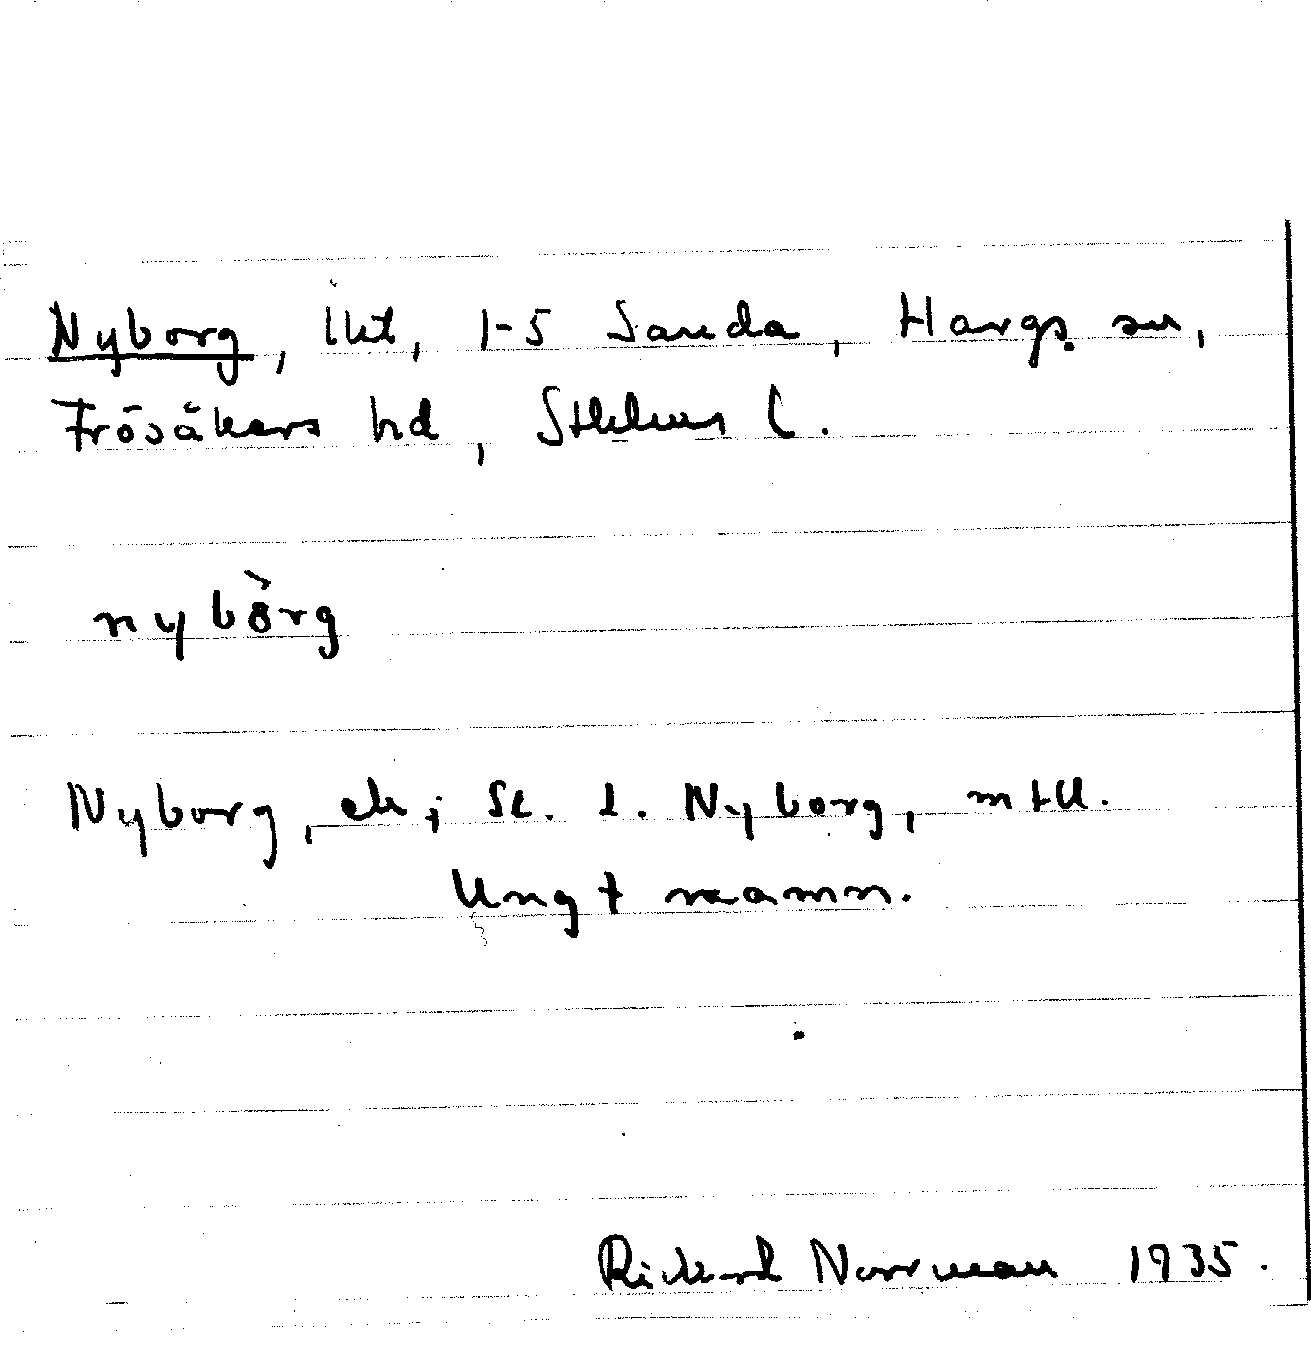 Nyborg, lht, 1-5 Sanda, Hargs sn,
Frösåkers hd, Sthlms l.
nybòrg
Nyborg, ek; Se. d. Nyborg, mtU.
Ungt namn.
Rickard Norrman 1935.